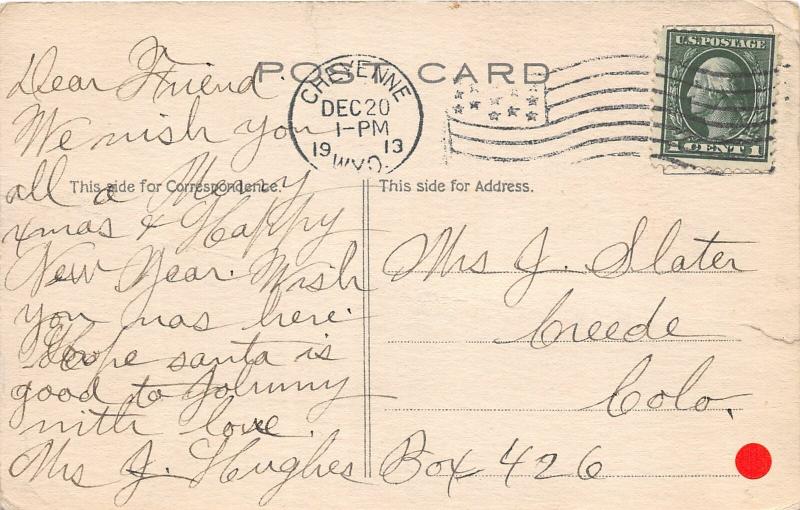 POST CARD
CHEYENNE
DEC 20
1-PM
1913
WYO.
U.S. POSTAGE
1 CENT 1
This side for Correspondence.
This side for Address.
Dear Friend
We wish you
all a Merry
xmas & Happy
New Year. Wish
you was here.
Hope santa is
good to Johnny
with love.
Mrs J. Hughes
Mrs J. Slater
Creede
Colo.
Box 426